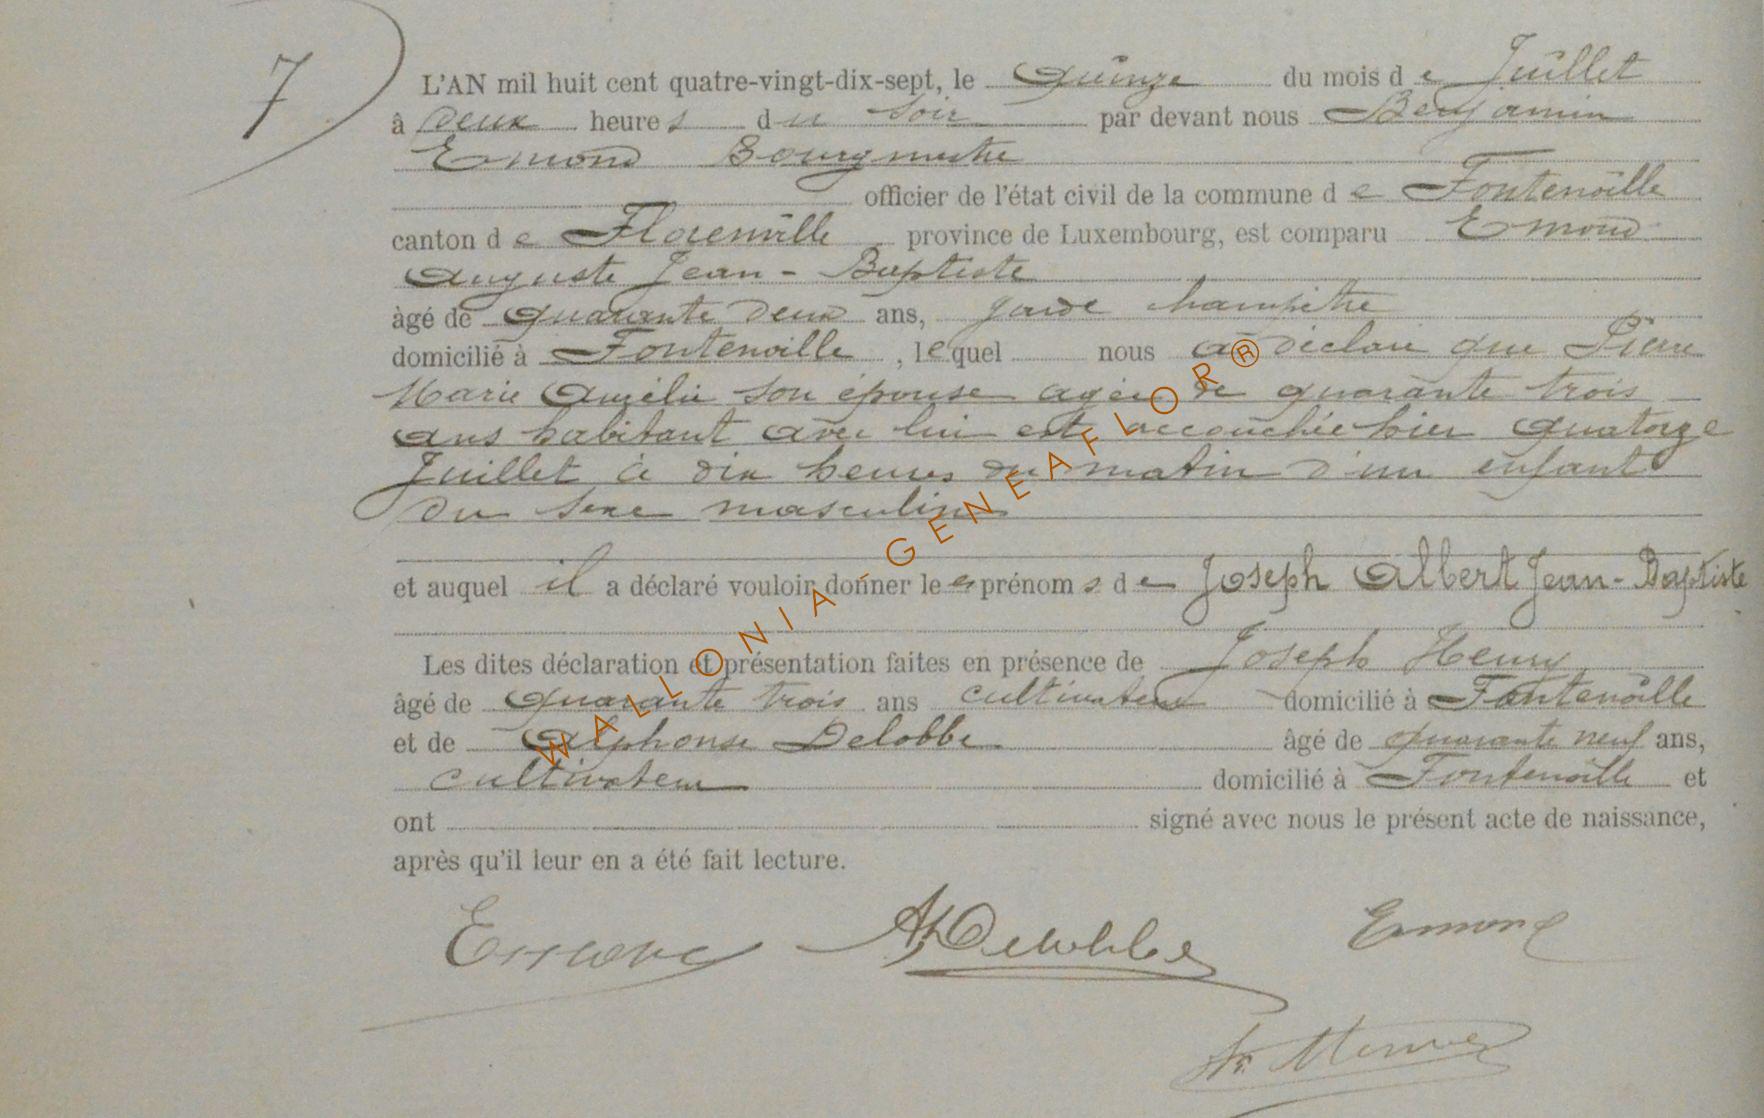 7
L'AN mil huit cent quatre-vingt-dix-sept, le Quinze du mois d e Juillet
à Deux heure s d u soir par devant nous Benjamin
Emond Bourgmestre
officier de l'état civil de la commune d e Fontenoille
canton d e Florenville province de Luxembourg, est comparu Emond
Auguste Jean-Baptiste
âgé de quarante deux ans, garde champêtre
domicilié à Fontenoille , lequel nous a déclaré que Pierre
Marie Amélie son épouse agée de quarante trois
ans habitant avec lui est accouchée hier quatorze
Juillet à dix heures du matin d'un enfant
du sexe masculin
et auquel il a déclaré vouloir donner le s prénom s d e Joseph Albert Jean-Baptiste
Les dites déclaration et présentation faites en présence de Joseph Henry
âgé de quarante trois ans cultivateur domicilié à Fontenoille
et de Alphonse Delobbe âgé de quarante neuf ans,
cultivateur domicilié à Fontenoille et
ont signé avec nous le présent acte de naissance,
après qu'il leur en a été fait lecture.
Emond Delobbe Emond
WALLONIA-GENEAFLOR®